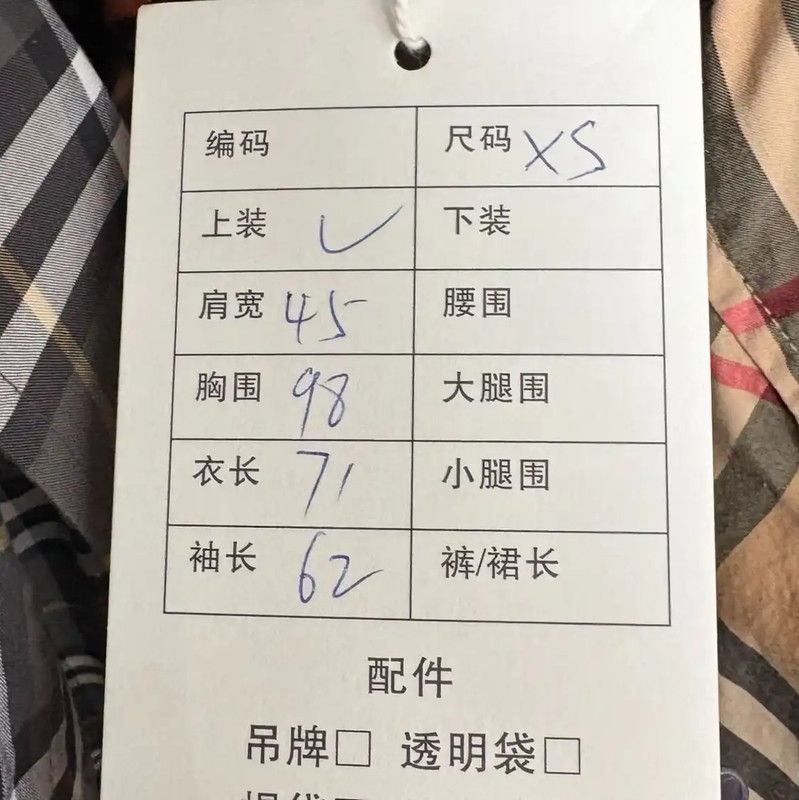 编码 尺码 XS
上装 ✓ 下装
肩宽 45 腰围
胸围 98 大腿围
衣长 71 小腿围
袖长 62 裤/裙长
配件
吊牌□ 透明袋□